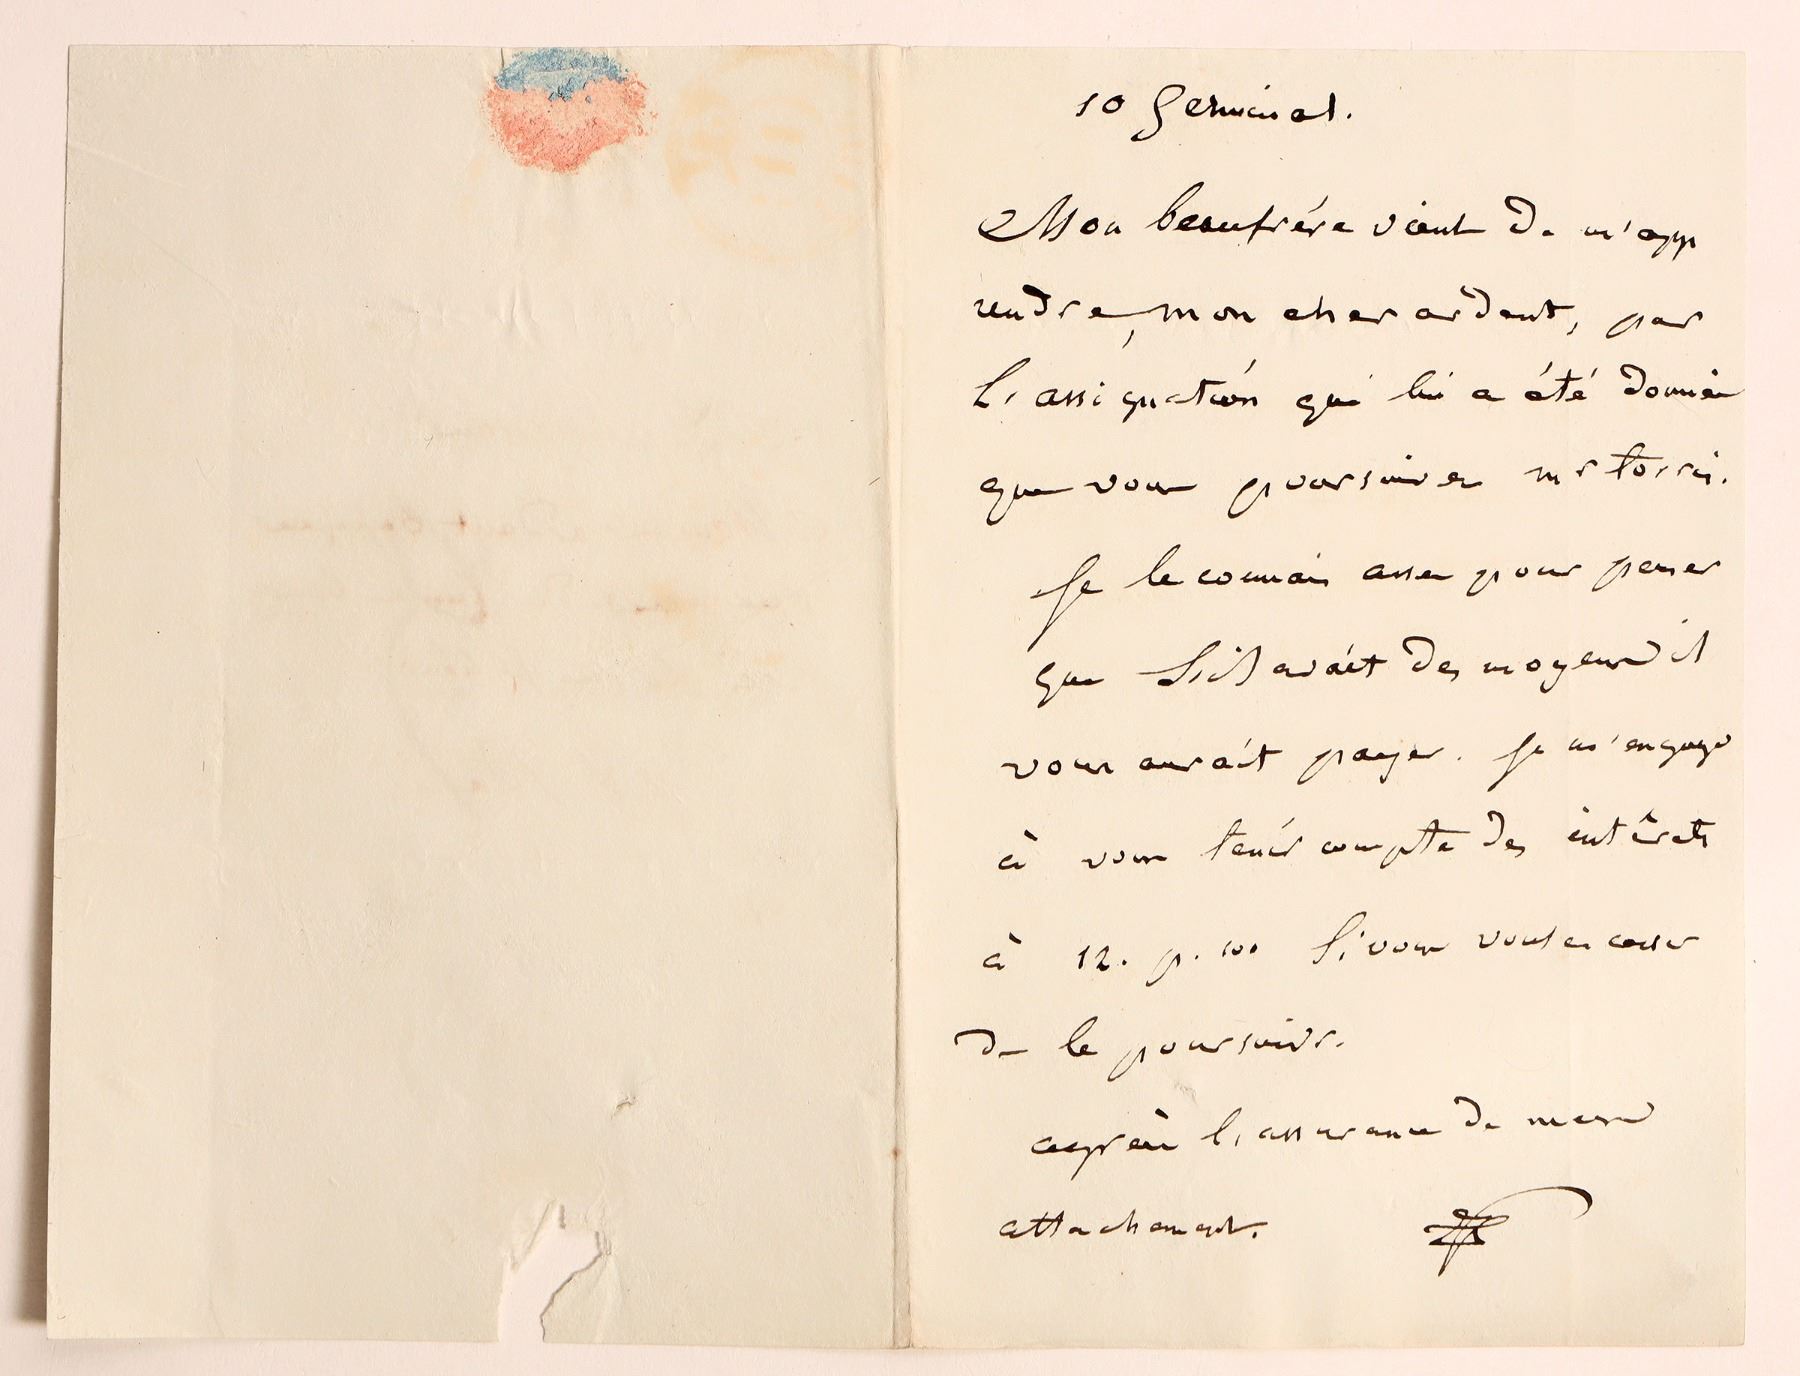 10 Germinal.
Mon beaufrére vient de m'app
rendre, mon cher ardent, par
L'assignation qui lui a été donnée
que vous poursuivez mr torri.
Je le connais assez pour penser
que S'il avait des moyens il
vous aurait payer. Je m'engage
à vous tenir compte des intérêts
à 12. p. 100 Si vous voulez cesser
de le poursuivre.
agréez l'assurance de mon
attachement.